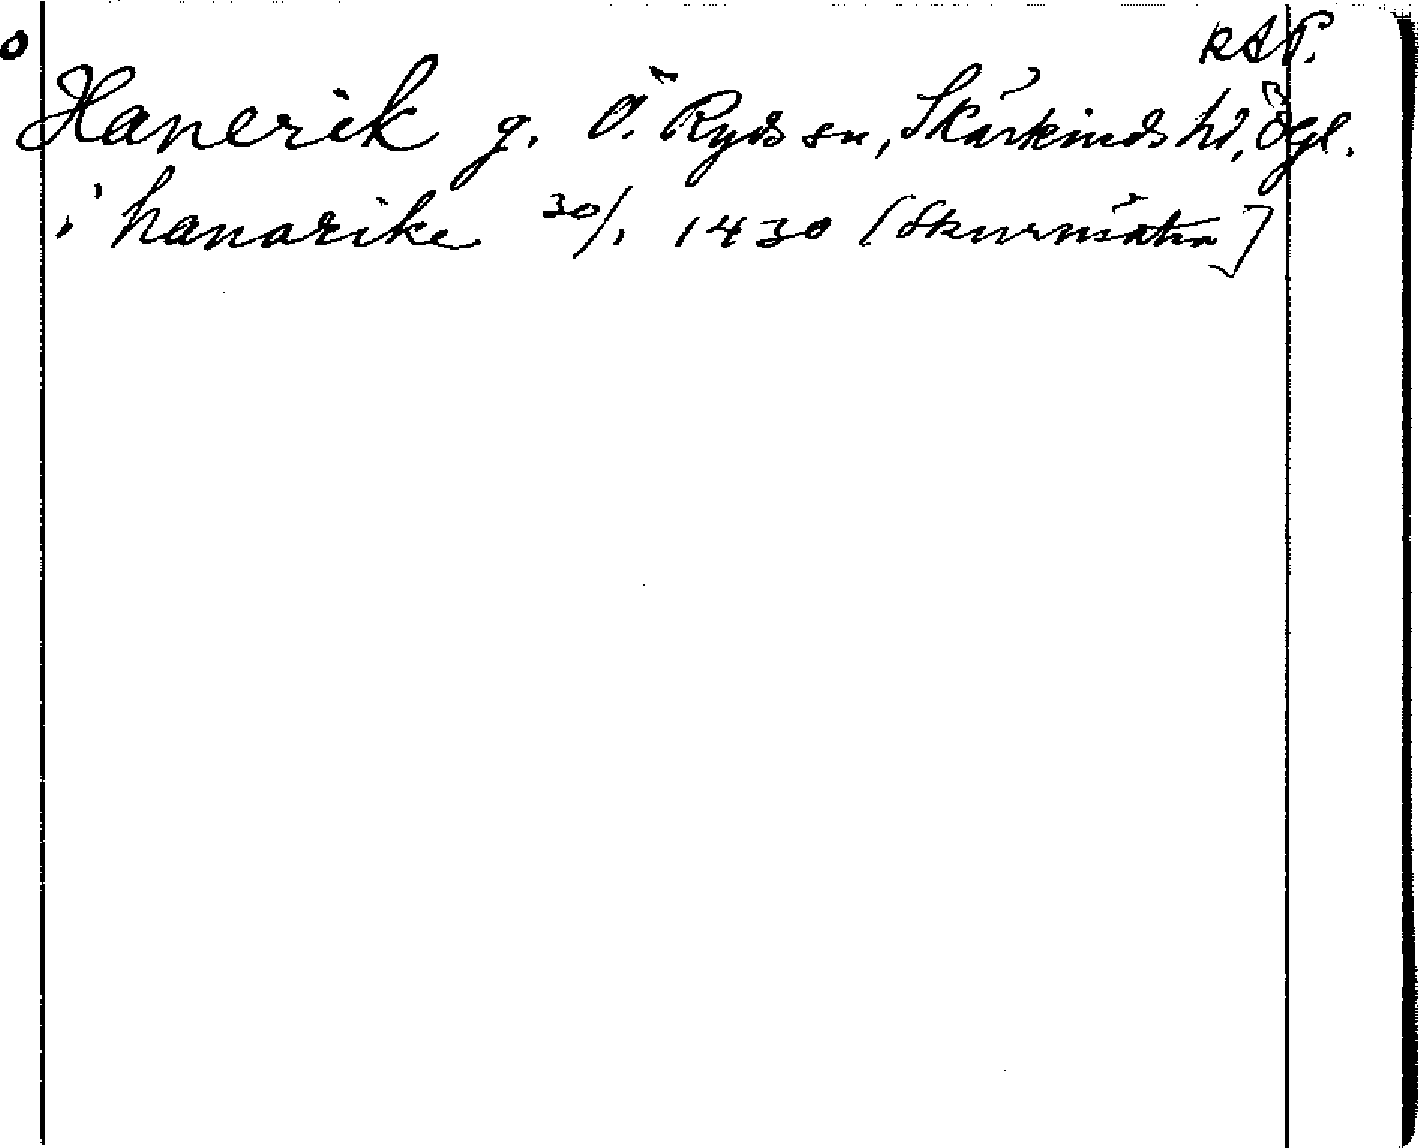 RAP.
Hanerik g. Ö. Ryds sn, Skärkinds hd, Ögl.
i hanarike 30/1 1430 [Skurusätra]